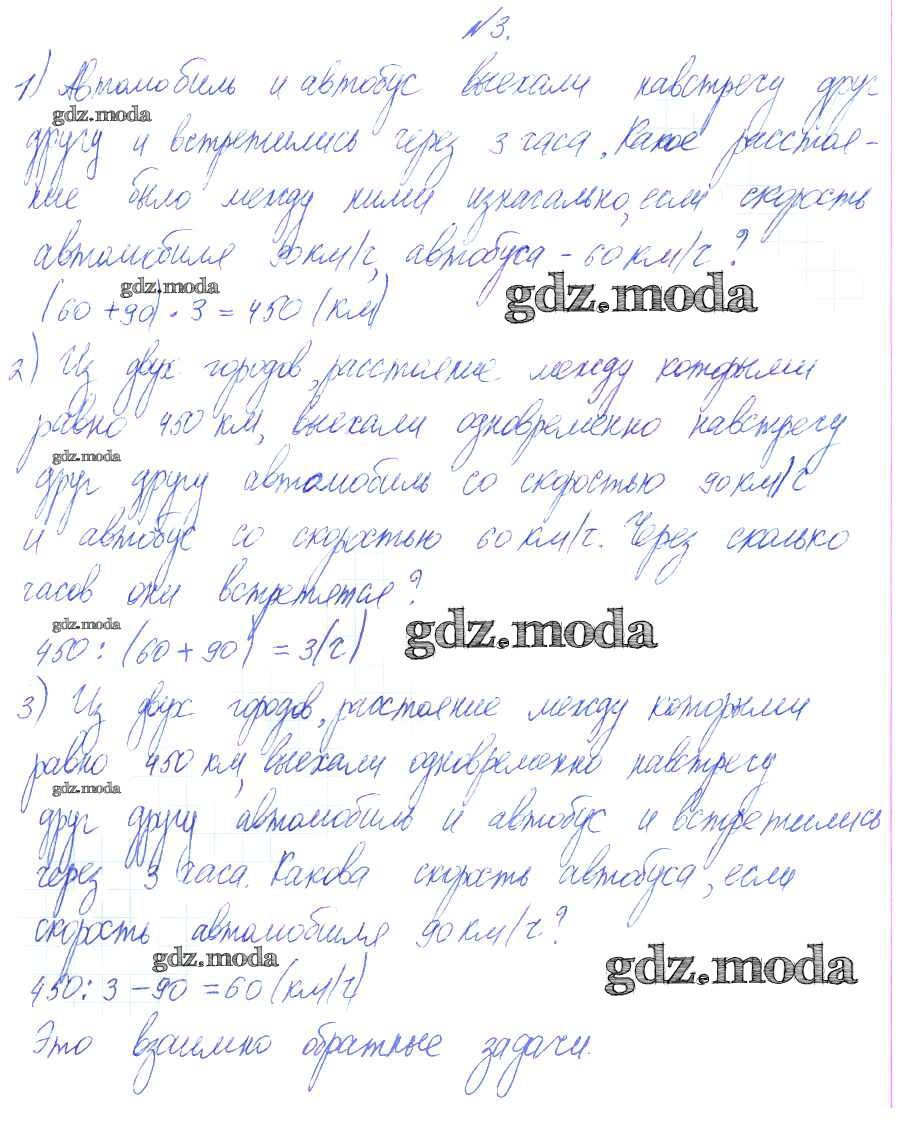 №3.
1) Автомобиль и автобус выехали навстречу друг
gdz.moda
другу и встретились через 3 часа. Какое расстоя-
ние было между ними изначально, если скорость
автомобиля 90 км/ч, автобуса - 60 км/ч?
gdz.moda
gdz.moda
(60 + 90) • 3 = 450 (км)
2) Из двух городов, расстояние между которыми
равно 450 км, выехали одновременно навстречу
gdz.moda
друг другу автомобиль со скоростью 90 км/ч
и автобус со скоростью 60 км/ч. Через сколько
часов они встретятся?
gdz.moda
gdz.moda
450 : (60 + 90) = 3 (ч)
3) Из двух городов, расстояние между которыми
равно 450 км, выехали одновременно навстречу
gdz.moda
друг другу автомобиль и автобус и встретились
через 3 часа. Какова скорость автобуса, если
скорость автомобиля 90 км/ч?
gdz.moda
gdz.moda
450 : 3 - 90 = 60 (км/ч)
Это взаимно обратные задачи.